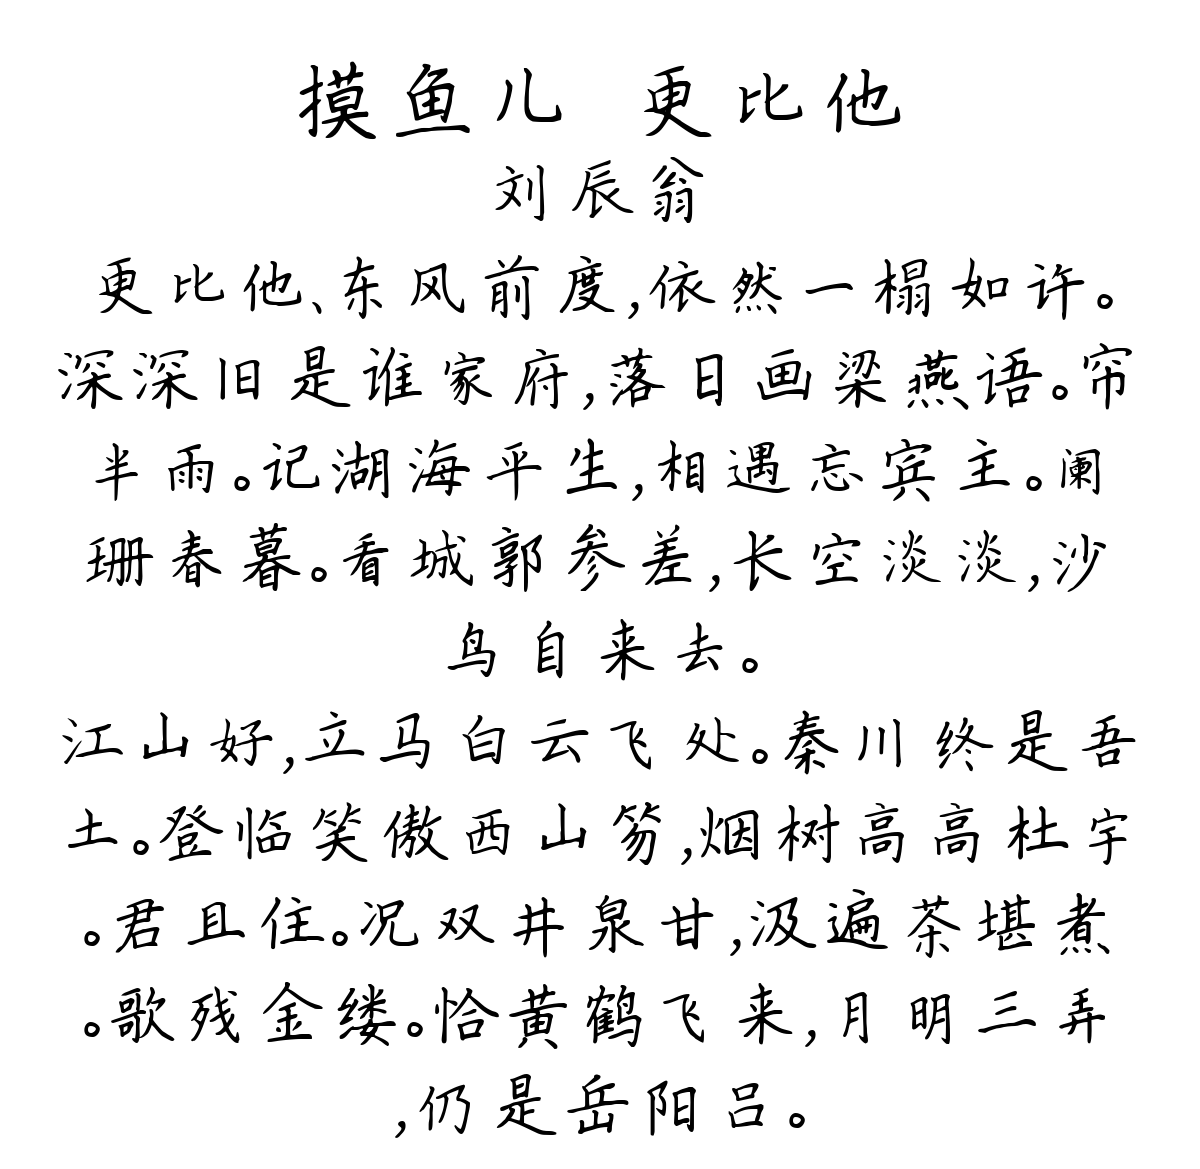 摸鱼儿 更比他
刘辰翁
更比他、东风前度,依然一榻如许。
深深旧是谁家府,落日画梁燕语。帘
半雨。记湖海平生,相遇忘宾主。阑
珊春暮。看城郭参差,长空淡淡,沙
鸟自来去。
江山好,立马白云飞处。秦川终是吾
土。登临笑傲西山笏,烟树高高杜宇
。君且住。况双井泉甘,汲遍茶堪煮
。歌残金缕。恰黄鹤飞来,月明三弄
,仍是岳阳吕。